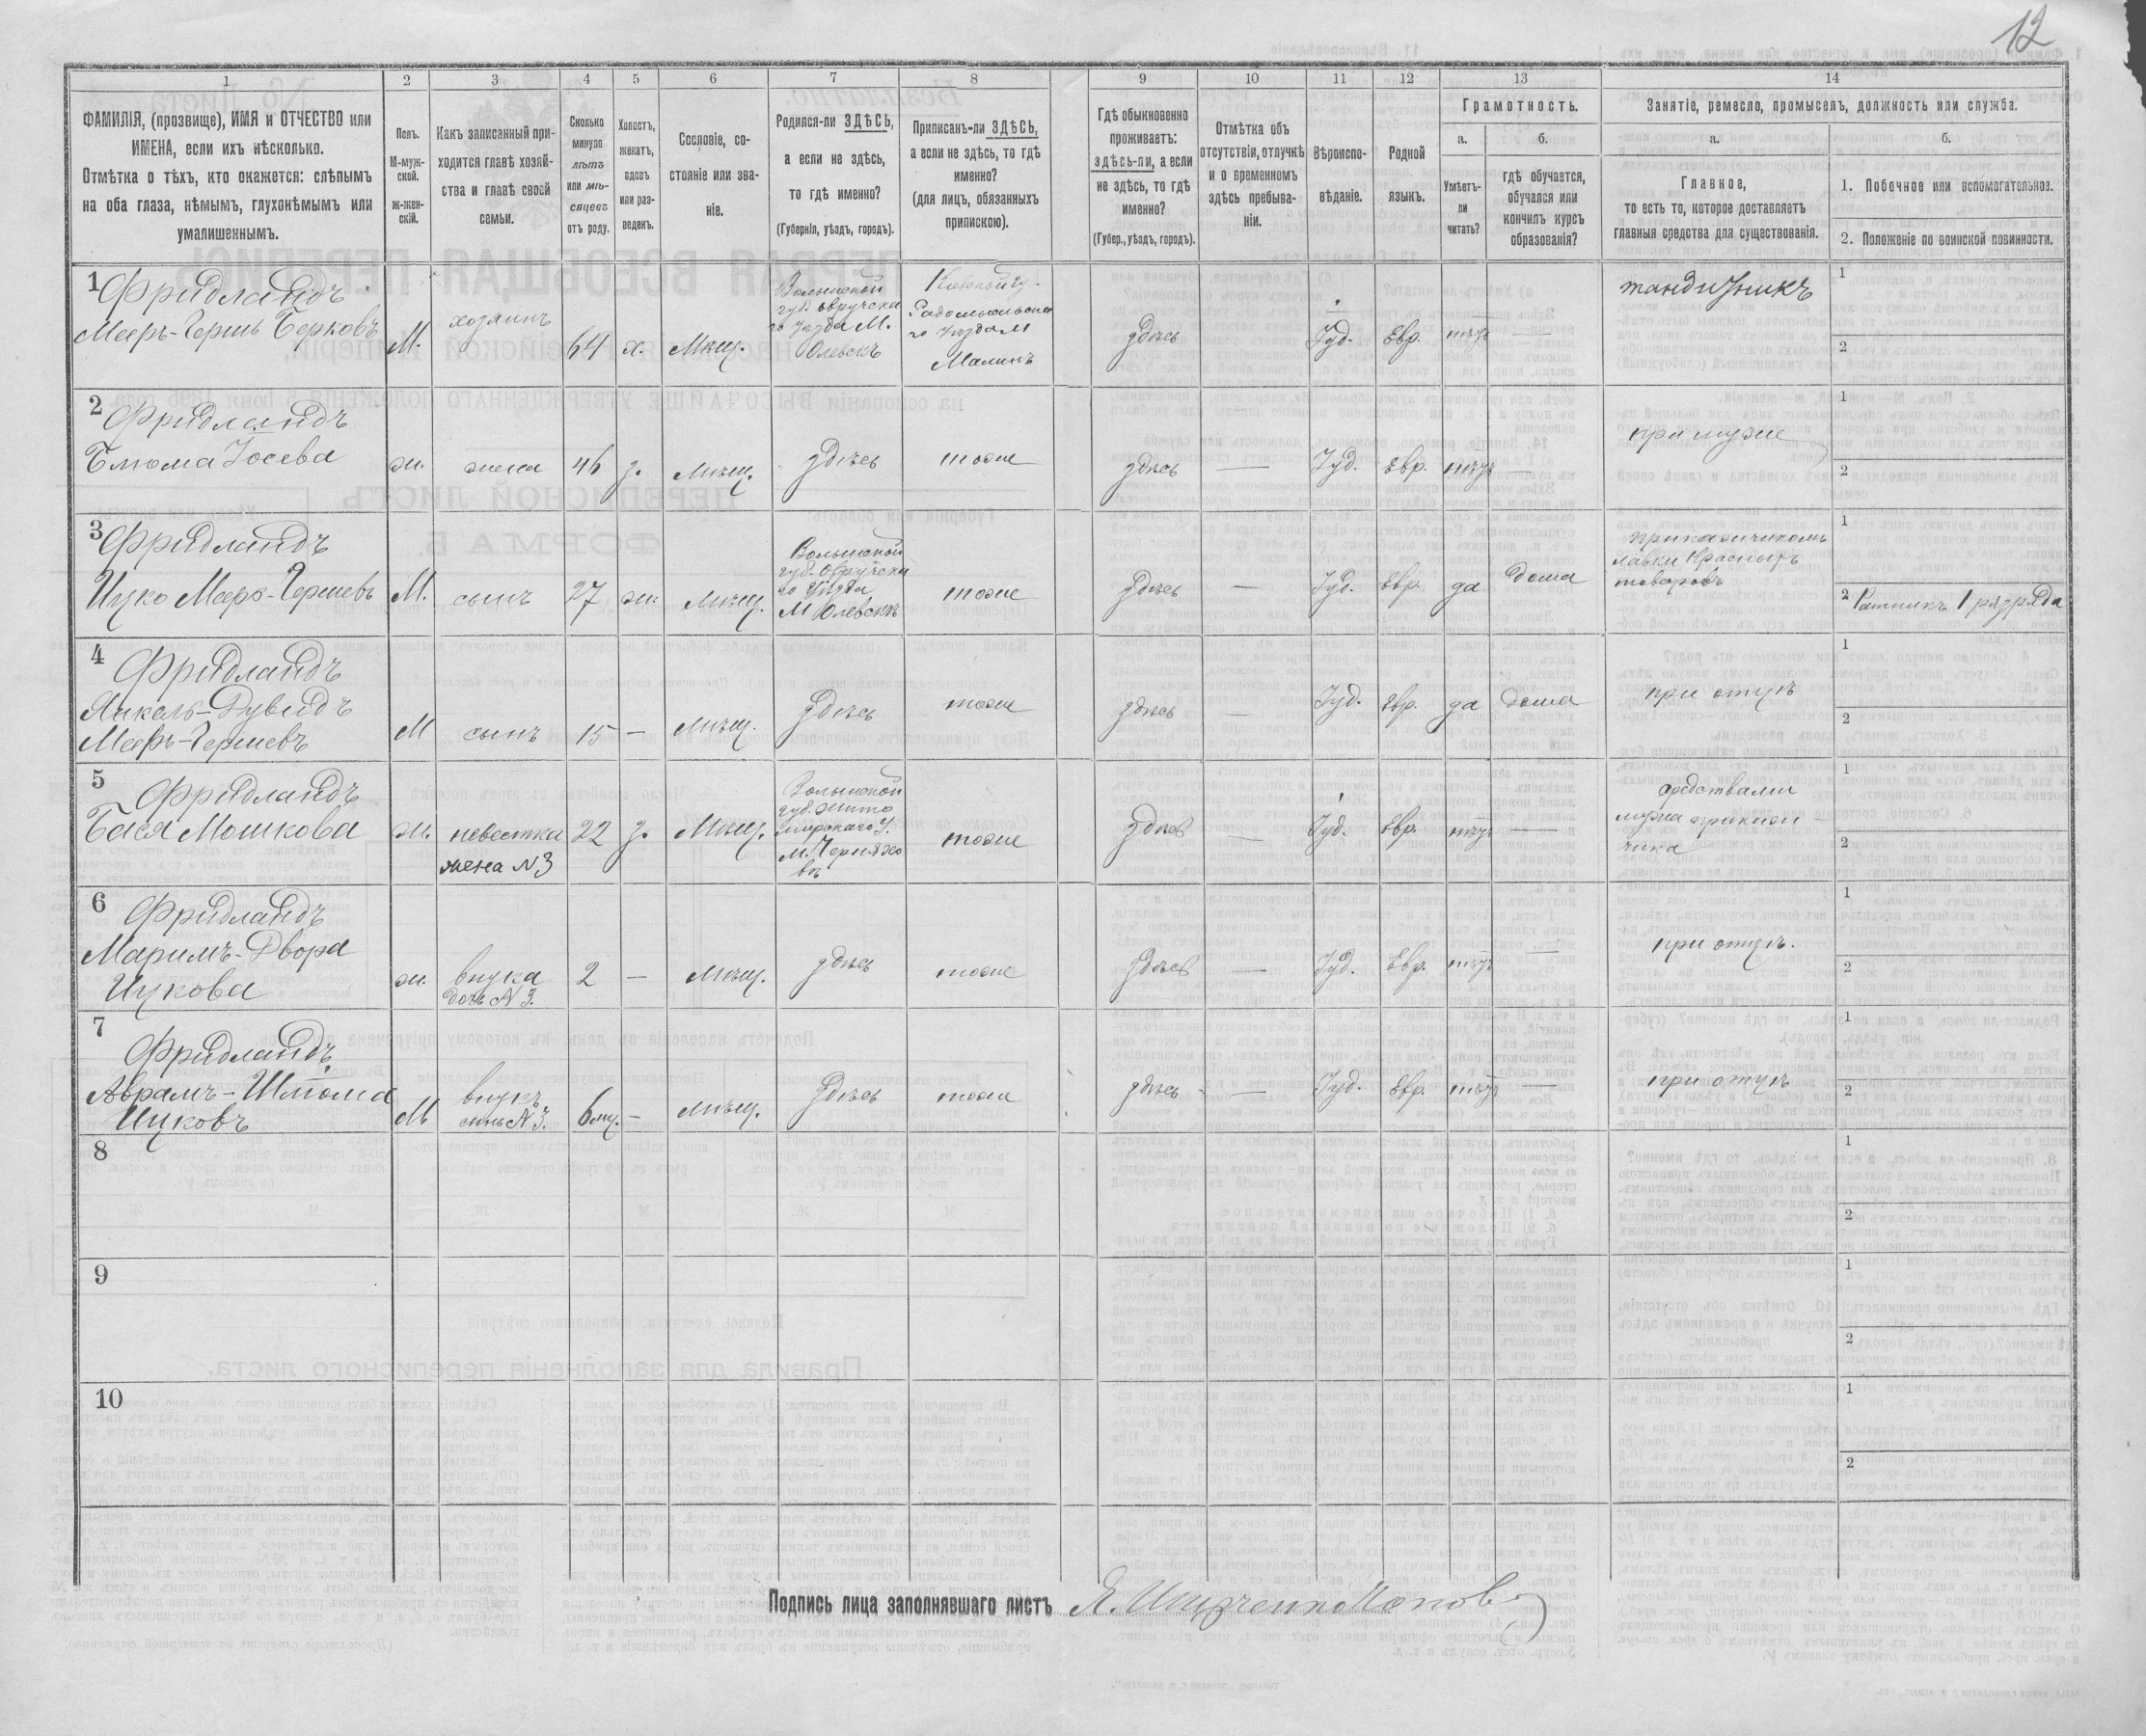 12
1 2 3 4 5 6 7 8 9 10 11 12 13 14
ФАМИЛІЯ, (прозвище), ИМЯ и ОТЧЕСТВО или
ИМЕНА, если ихъ нѣсколько.
Отмѣтка о тѣхъ, кто окажется: слѣпымъ
на оба глаза, нѣмымъ, глухонѣмымъ или
умалишеннымъ.
Полъ.
М-муж-
ской.
ж-жен-
скій.
Какъ записанный при-
ходится главѣ хозяй-
ства и главѣ своей
семьи.
Сколько
минуло
лѣтъ
или мѣ-
сяцевъ
отъ роду.
Холостъ,
женатъ,
вдовъ
или раз-
веденъ.
Сословіе, со-
стояніе или зва-
ніе.
Родился-ли ЗДѢСЬ,
а если не здѣсь,
то гдѣ именно?
(Губернія, уѣздъ, городъ).
Приписанъ-ли ЗДѢСЬ,
а если не здѣсь, то гдѣ
именно?
(для лицъ, обязанныхъ
припискою).
Гдѣ обыкновенно
проживаетъ:
здѣсь-ли, а если
не здѣсь, то гдѣ
именно?
(Губер., уѣздъ, городъ).
Отмѣтка объ
отсутствіи, отлучкѣ
и о временномъ
здѣсь пребыва-
ніи.
Вѣроиспо-
вѣданіе.
Родной
языкъ.
Грамотность.
а.
Умѣетъ-
ли
читать?
б.
гдѣ обучается,
обучался или
кончилъ курсъ
образованія?
Занятіе, ремесло, промыселъ, должность или служба.
а.
Главное,
то есть то, которое доставляетъ
главныя средства для существованія.
б.
1. Побочное или вспомогательное.
2. Положеніе по воинской повинности.
1
Фридландъ
Мееръ-Гершь Берковъ
М.
хозяинъ
64
х.
Мѣщ.
Волынской
губ. овручска
го уѣзда М.
Олевскъ
Кіевской гу.
Радомысльска
го уѣзда М
Малинъ
здѣсь
Іуд.
Евр.
нѣтъ
—
1
2
2
Фридландъ
Блюма Іосева
ж.
жена
46
з.
мѣщ.
здѣсь
тоже
здѣсь
—
Іуд.
Евр.
нѣтъ
—
при мужѣ
1
2
3
Фридландъ
Ицко Мееръ-Гершевъ
М.
сынъ
27
ж.
мѣщ.
Волынской
губ. Овручска
го уѣзда
М Олевскъ
тоже
здѣсь
—
Іуд.
Евр.
да
дома
приказчикомъ
лавки Красныхъ
товаровъ
1
2 Ратникъ 1 разряда
4
Фридландъ
Янкель-Дувидъ
Мееръ-Гершевъ
М
сынъ
15
—
мѣщ.
здѣсь
тоже
здѣсь
—
Іуд.
Евр.
да
дома
при отцѣ
1
2
5
Фридландъ
Бася Мошкова
ж.
невестка
жена N3
22
з.
Мѣщ.
Волынской
губ. Жито
мирскаго У.
м. Черняхо
въ
тоже
здѣсь
—
Іуд.
Евр.
нѣтъ
—
средствами
мужа приказ
чика
1
2
6
Фридландъ
Маримъ-Двора
Ицкова
ж.
внука
дочь N 3.
2
—
мѣщ.
здѣсь
тоже
здѣсь
—
Іуд.
Евр.
нѣтъ
—
при отцѣ.
1
2
7
Фридландъ
Аврамъ-Шлёма
Ицковъ
М
внукъ
сынъ N 3.
6 мц.
—
мѣщ.
здѣсь
тоже
здѣсь
—
Іуд.
Евр.
нѣтъ
—
при отцѣ
1
2
8
1
2
9
1
2
10
1
2
Подпись лица заполнявшаго листъ